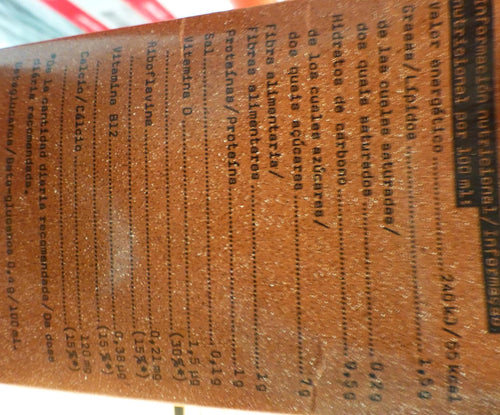 Información nutricional/Informação
nutricional por 100 ml:
Valor energético 240 kJ/ kcal
Grasas/Lípidos 1,5g
de las cuales saturadas/
dos quais saturados 0,2g
Hidratos de carbono g
de los cuales azúcares/
dos quais açúcares 7g
Fibra alimentaria/
Fibras alimentares 1g
Proteínas/Proteína 1g
Sal 0,1g
Vitamina D 1,5 µg
(30%*)
Riboflavina 0,21mg
(15%*)
Vitamina B12 0,38µg
(15%*)
Calcio/Cálcio 120 mg
(15%*)
*De la cantidad diaria recomendada/Da dose
diária recomendada.
Beta-glucanos 0,4g/100 ml.